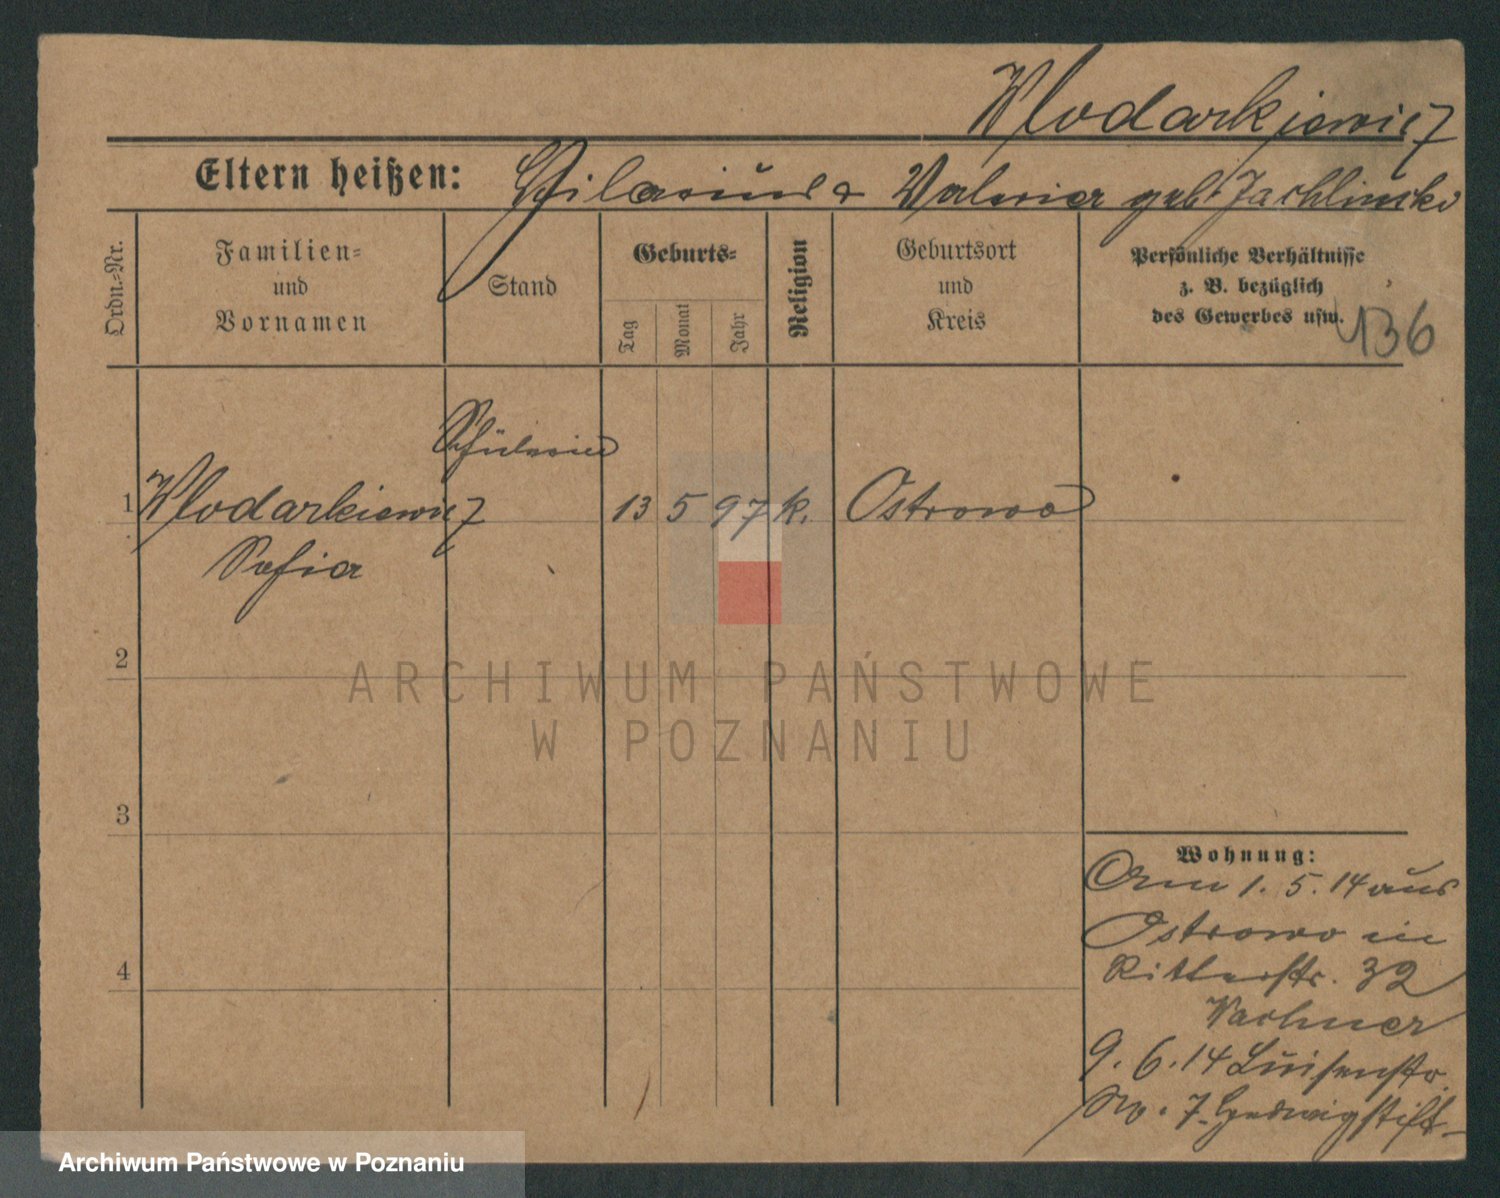 Wlodarkiewicz
Eltern heißen: Hilarius & Valeria geb. Jachlinska
Ordn.=Nr.
Familien=
und
Vornamen
Stand
Geburts=
Tag
Monat
Jahr
Religion
Geburtsort
und
Kreis
Persönliche Verhältnisse
z. B. bezüglich
des Gewerbes usw.
136
Schülerin
1 Wlodarkiewicz 13 5 97 k. Ostrowo
Sofia
2
3
4
Wohnung:
Am 1. 5. 14 aus
Ostrowo in
Ritterstr. 32
9. 6. 14 Luisenstr.
No. 7. Hedwigstift
ARCHIWUM PAŃSTWOWE
W POZNANIU
Archiwum Państwowe w Poznaniu